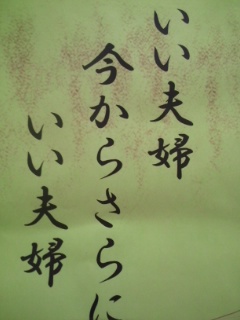 いい夫婦
今からさらに
いい夫婦